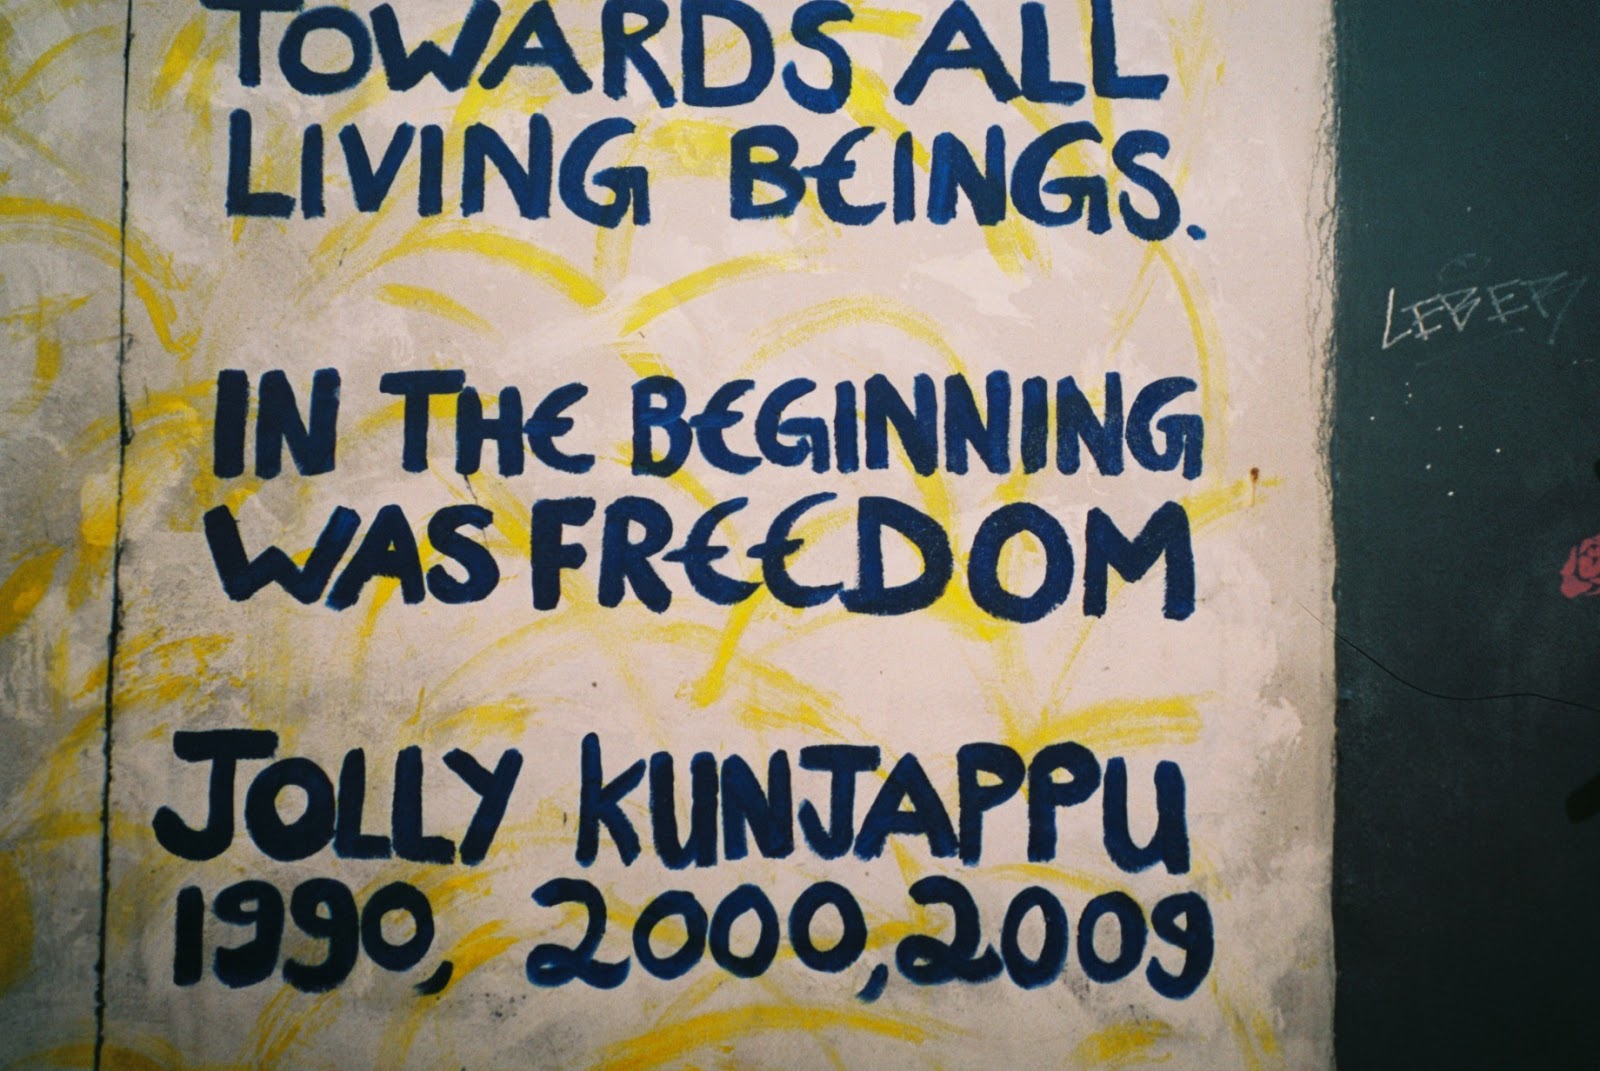 TOWARDS ALL
LIVING BEINGS.
IN THE BEGINNING
WAS FREEDOM
JOLLY KUNJAPPU
1990, 2000, 2009
LEBER